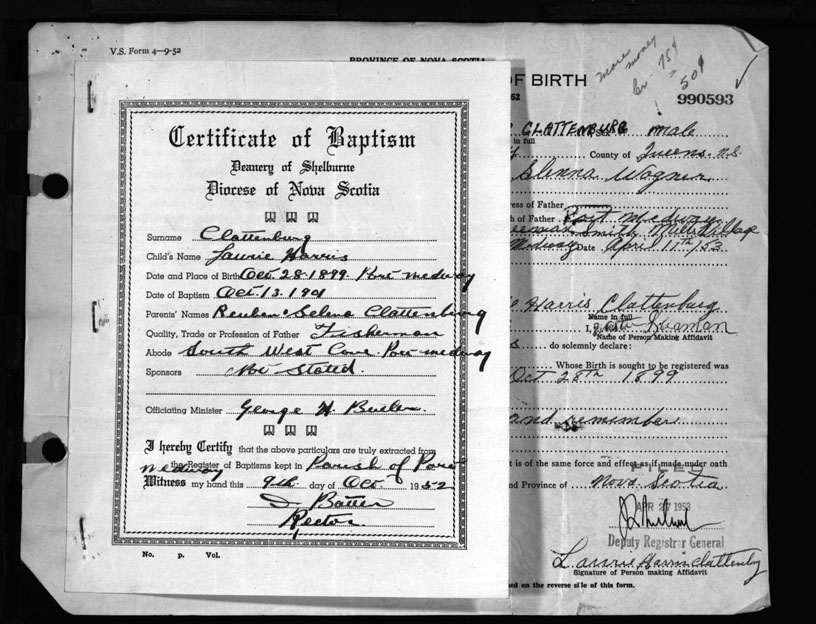 V.S. Form 4—9-52
PROVINCE OF NOVA SCOTIA
more money
75¢
50¢
OF BIRTH
990593
Certificate of Baptism
Deanery of Shelburne
Diocese of Nova Scotia
Surname Clattenburg
Child's Name Laurie Harris
Date and Place of Birth Oct. 28-1899. Port Medway
Date of Baptism Oct. 13. 1901
Parents' Names Reuben & Selena Clattenburg
Quality, Trade or Profession of Father Fisherman
Abode South West Cove Port Medway
Sponsors Not Stated.
Officiating Minister George H. Butler.
I hereby Certify that the above particulars are truly extracted from
the Register of Baptisms kept in Parish of Port
Medway
Witness my hand this 9th. day of Oct. 1952
Rector.
No. p. Vol.
CLATTENBURG male
in full
County of Queens. N.S.
Wagner
ress of Father
h of Father Port Medway
Smith Mills Village
Medway Date April 11th/53
Harris Clattenburg
Name in full
I,
Name of Person Making Affidavit
do solemnly declare:
Whose Birth is sought to be registered was
Oct 28th 1899
and remember
t is of the same force and effect as if made under oath
nd Province of Nova Scotia
APR 27 1953
Deputy Registrar General
Laurie Harris Clattenburg
Signature of Person making Affidavit
ed on the reverse side of this form.